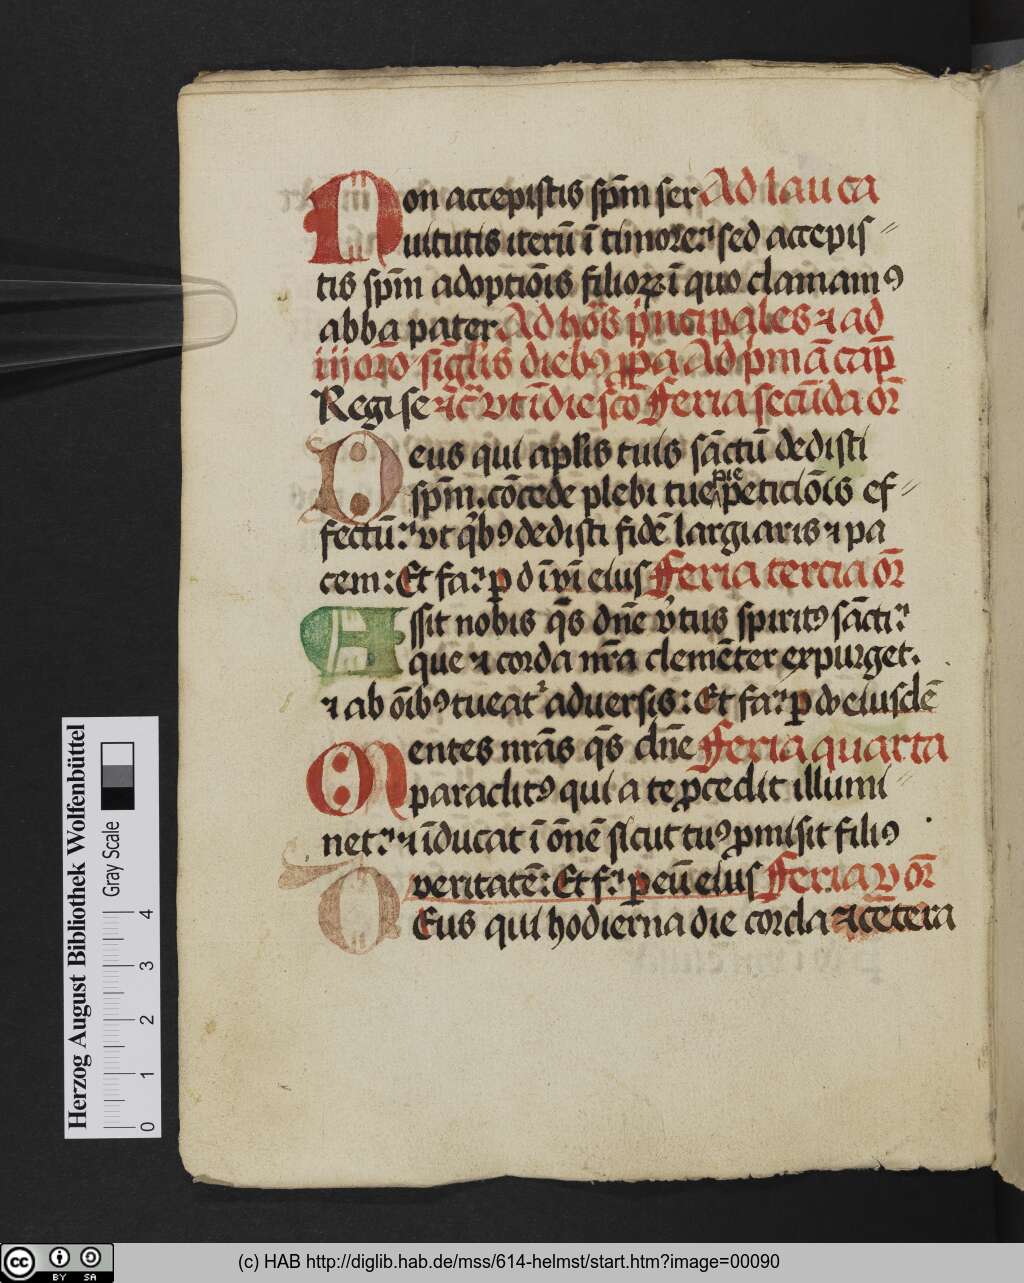 Non accepistis sp̄m ser Ad lau ca
uitutis iterū ī timore: sed accepis⸗
tis sp̄m adoptiōis filioꝝ ī quo clamamꝯ
abba pater. Ad ho᷑s p̱ncipales ⁊ ad
Regi se ⁊c̄ vt ī die sc̄o Feria secūda or̄
Deus qui apl̄is tuis sāctū dedisti
sp̄m. cōcede plebi tue pie peticiōis ef⸗
fectū: vt qͥbꝯ dedisti fidē largiaris ⁊ pa
cem: Et fa: ꝑ d ī vī eius Feria tercia or̄
Assit nobis qs̄ dn̄e v̓tus spiritꝯ sācti:
que ⁊ corda nr̄a clemēter expurget.
⁊ ab ōibꝯ tueat᷑ aduersis: Et fa: ꝑ dō eiusdē
Mentes nr̄as qs̄ dn̄e Feria quarta
paraclitꝯ qui a te ꝓcedit illumi⸗
net: ⁊ īducat ī ōnē sicut tuꝯ ꝓmisit filiꝯ
veritatē: Et f: ꝑ eū eius Feria v or̄
DEus qui hodierna die corda ⁊ cētera
Herzog August Bibliothek Wolfenbüttel
Gray Scale
0 1 2 3 4
cc BY SA
(c) HAB http://diglib.hab.de/mss/614-helmst/start.htm?image=00090